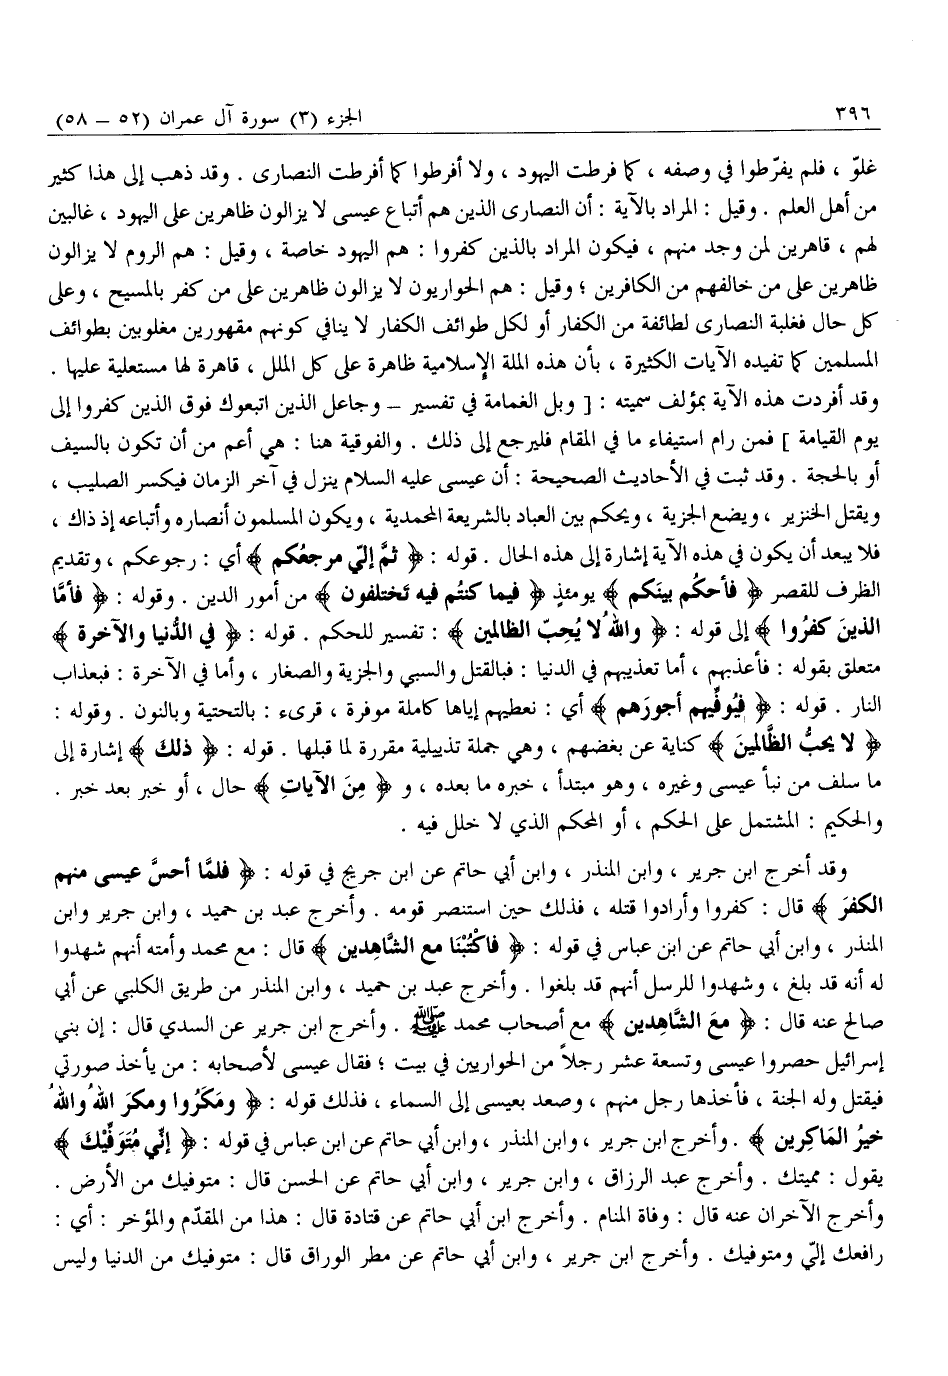 ٣٩٦
الجزء (٣) سورة آل عمران (٥٢ – ٥٨)
غلوّ ، فلم يفرّطوا في وصفه ، كما فرطت اليهود ، ولا أفرطوا كما أفرطت النصارى . وقد ذهب إلى هذا كثير
من أهل العلم . وقيل : المراد بالآية : أن النصارى الذين هم أتباع عيسى لا يزالون ظاهرين على اليهود ، غالبين
لهم ، قاهرين لمن وجد منهم ، فيكون المراد بالذين كفروا : هم اليهود خاصة ، وقيل : هم الروم لا يزالون
ظاهرين على من خالفهم من الكافرين ؛ وقيل : هم الحواريون لا يزالون ظاهرين على من كفر بالمسيح ، وعلى
كل حال فغلبة النصارى لطائفة من الكفار أو لكل طوائف الكفار لا ينافي كونهم مقهورين مغلوبين بطوائف
المسلمين كما تفيده الآيات الكثيرة ، بأن هذه الملة الإسلامية ظاهرة على كل الملل ، قاهرة لها مستعلية عليها .
وقد أفردت هذه الآية بمؤلف سميته : [ وبل الغمامة في تفسير – وجاعل الذين اتبعوك فوق الذين كفروا إلى
يوم القيامة ] فمن رام استيفاء ما في المقام فليرجع إلى ذلك . والفوقية هنا : هي أعم من أن تكون بالسيف
أو بالحجة . وقد ثبت في الأحاديث الصحيحة : أن عيسى عليه السلام ينزل في آخر الزمان فيكسر الصليب ،
ويقتل الخنزير ، ويضع الجزية ، ويحكم بين العباد بالشريعة المحمدية ، ويكون المسلمون أنصاره وأتباعه إذ ذاك ،
فلا يبعد أن يكون في هذه الآية إشارة إلى هذه الحال . قوله : ﴿ ثمَّ إليّ مرجعُكم ﴾ أي : رجوعكم ، وتقديم
الظرف للقصر ﴿ فأحكُم بينَكم ﴾ يومئذٍ ﴿ فيما كنتُم فيه تَختلفون ﴾ من أمور الدين . وقوله : ﴿ فأمَّا
الذينَ كفرُوا ﴾ إلى قوله : ﴿ واللهُ لا يُحِبّ الظالمين ﴾ : تفسير للحكم . قوله : ﴿ في الدُّنيا والآخرة ﴾
متعلق بقوله : فأعذبهم ، أما تعذيبهم في الدنيا : فبالقتل والسبي والجزية والصغار ، وأما في الآخرة : فبعذاب
النار . قوله : ﴿ فيُوفِّيهم أجورَهم ﴾ أي : نعطيهم إياها كاملة موفرة ، قرىء : بالتحتية وبالنون . وقوله :
﴿ لا يحبُّ الظَّالمينَ ﴾ كناية عن بغضهم ، وهي جملة تذييلية مقررة لما قبلها . قوله : ﴿ ذلكَ ﴾ إشارة إلى
ما سلف من نبأ عيسى وغيره ، وهو مبتدأ ، خبره ما بعده ، و ﴿ مِنَ الآياتِ ﴾ حال ، أو خبر بعد خبر .
والحكيم : المشتمل على الحكم ، أو المحكم الذي لا خلل فيه .
وقد أخرج ابن جرير ، وابن المنذر ، وابن أبي حاتم عن ابن جريج في قوله : ﴿ فلمَّا أحسَّ عيسى منهم
الكفرَ ﴾ قال : كفروا وأرادوا قتله ، فذلك حين استنصر قومه . وأخرج عبد بن حميد ، وابن جرير وابن
المنذر ، وابن أبي حاتم عن ابن عباس في قوله : ﴿ فاكْتُبْنَا مع الشَّاهدين ﴾ قال : مع محمد وأمته أنهم شهدوا
له أنه قد بلغ ، وشهدوا للرسل أنهم قد بلغوا . وأخرج عبد بن حميد ، وابن المنذر من طريق الكلبي عن أبي
صالح عنه قال : ﴿ معَ الشَّاهِدين ﴾ مع أصحاب محمد ﷺ . وأخرج ابن جرير عن السدي قال : إن بني
إسرائيل حصروا عيسى وتسعة عشر رجلاً من الحواريين في بيت ؛ فقال عيسى لأصحابه : من يأخذ صورتي
فيقتل وله الجنة ، فأخذها رجل منهم ، وصعد بعيسى إلى السماء ، فذلك قوله : ﴿ ومَكَرُوا ومكرَ اللهُ واللهُ
خيرُ المَاكِرين ﴾ . وأخرج ابن جرير ، وابن المنذر ، وابن أبي حاتم عن ابن عباس في قوله : ﴿ إنّي مُتَوَفِّيْكَ ﴾
يقول : مميتك . وأخرج عبد الرزاق ، وابن جرير ، وابن أبي حاتم عن الحسن قال : متوفيك من الأرض .
وأخرج الآخران عنه قال : وفاة المنام . وأخرج ابن أبي حاتم عن قتادة قال : هذا من المقدّم والمؤخر : أي :
رافعك إليّ ومتوفيك . وأخرج ابن جرير ، وابن أبي حاتم عن مطر الوراق قال : متوفيك من الدنيا وليس